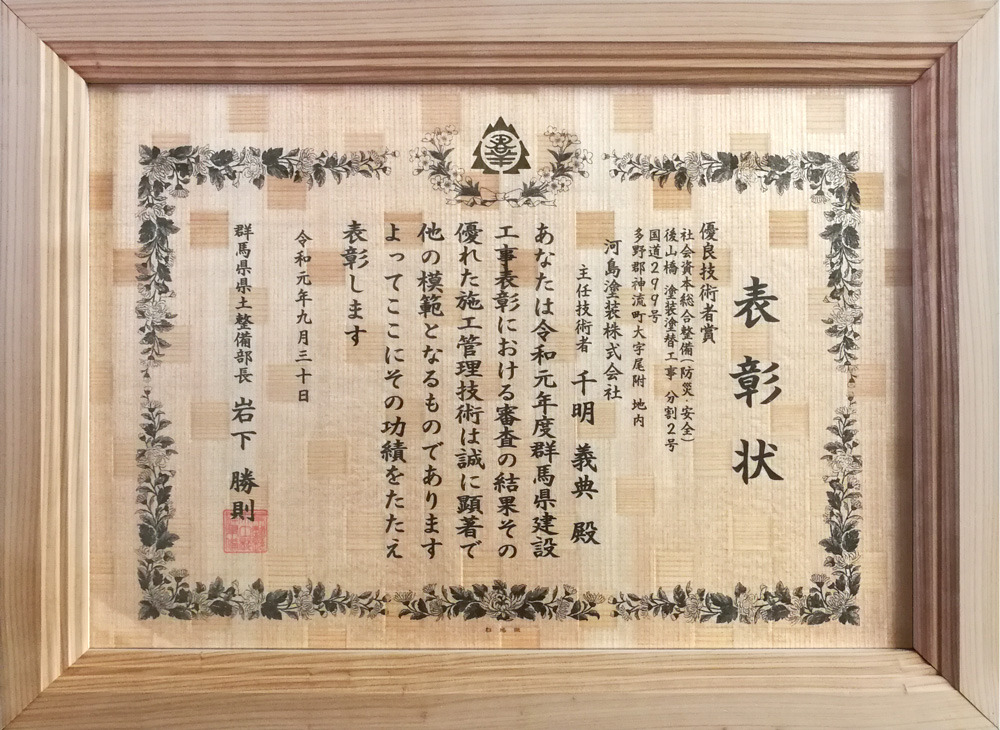 表彰状
優良技術者賞
社会資本総合整備(防災・安全)
後山橋 塗装塗替工事 分割2号
国道299号
多野郡神流町大字尾附 地内
河島塗装株式会社
主任技術者 千明 義典 殿
あなたは令和元年度群馬県建設
工事表彰における審査の結果その
優れた施工管理技術は誠に顕著で
他の模範となるものであります
よってここにその功績をたたえ
表彰します
令和元年九月三十日
群馬県県土整備部長 岩下 勝則